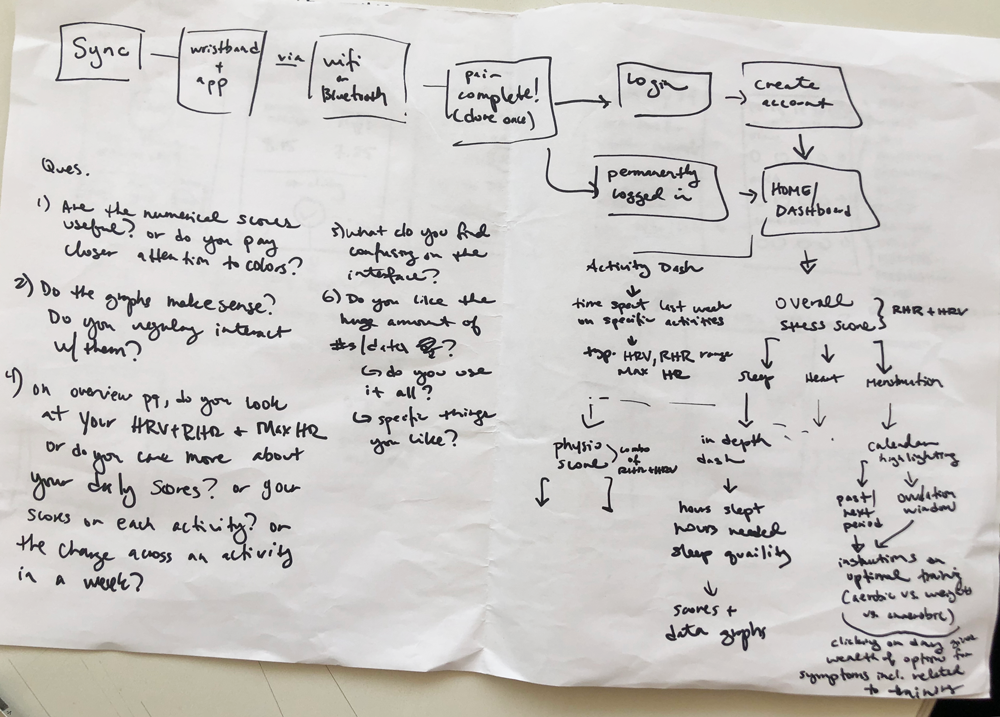 Sync
wristband
+
app
via
wifi
or
Bluetooth
pair
complete!
(done once)
Login
create
account
permanently
logged in
HOME/
DASHboard
Ques.
1) Are the numerical scores
useful? or do you pay
closer attention to colors?
2) Do the graphs make sense?
Do you regulary interact
w/ them?
4) on overview pg, do you look
at your HRV+RHR + Max HR
or do you care more about
your daily scores? or your
scores on each activity? or
the change across an activity
in a week?
5) what do you find
confusing on the
interface?
6) Do you like the
huge amount of
#s/data ?
↳ do you use
it all?
↳ specific things
you like?
Activity Dash
time spent last week
on specific activities
typ. HRV, RHR range
Max HR
Overall
stress score
RHR + HRV
sleep
Heart
Menstruation
physio
score
combo
of
RHR+HRV
in depth
dash
hours slept
hours needed
sleep quality
scores +
data graphs
calendar
highlighting
past/
next
period
ovulation
window
instructions on
optimal training
(aerobic vs. weights
vs anaerobic)
clicking on day give
wealth of options for
symptoms incl. related
to training